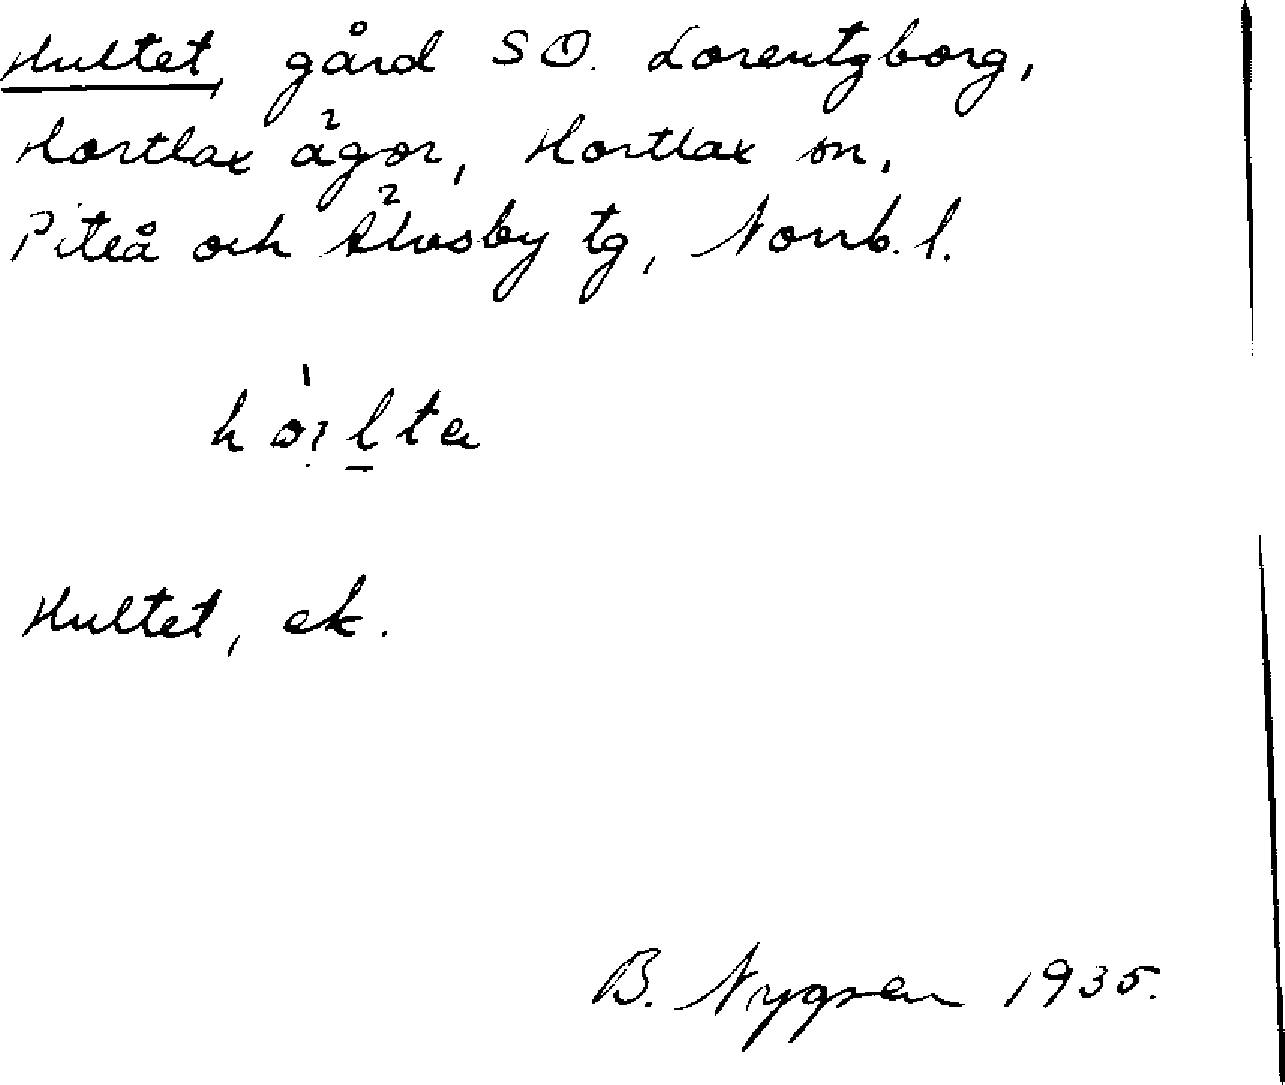 Hultet, gård SO. Lorentzborg,
Hortlax ägor, Hortlax sn,
Piteå och Älvsby tg, Norrb. l.
Hultet, ek.
B. Nygren 1935.